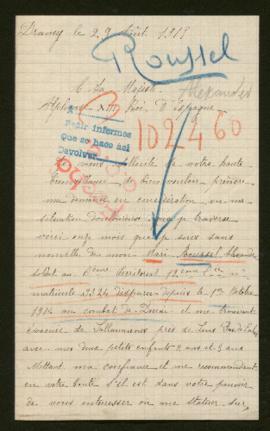 Drancy le 29 Août 1915
Roussel
Alexandre
A Sa Majesté
Alphonse XIII Roi D'Espagne
Pedir informes
Que se hace así
Devolver
102460
de votre haute
de bien vouloir prendre
ma demande en considération vu ma
situation douloureuse que je traverse
voici onze mois que je suis sans
nouvelle de mon Mari Roussel Alexandre
Soldat au 8ème Territorial 12ème Cie
matricule 3324 disparu depuis le 1er Octobre
1914 au combat de Douai et me trouvant
évacuée de Sallaumines près de Lens Pas de Calais
avec mes deux petits enfants 2 ans et 3 ans
Mettant ma confiance et me recommandant
en votre bonté S'il est dans votre pouvoir
de vous intéresser ou me statuer sur